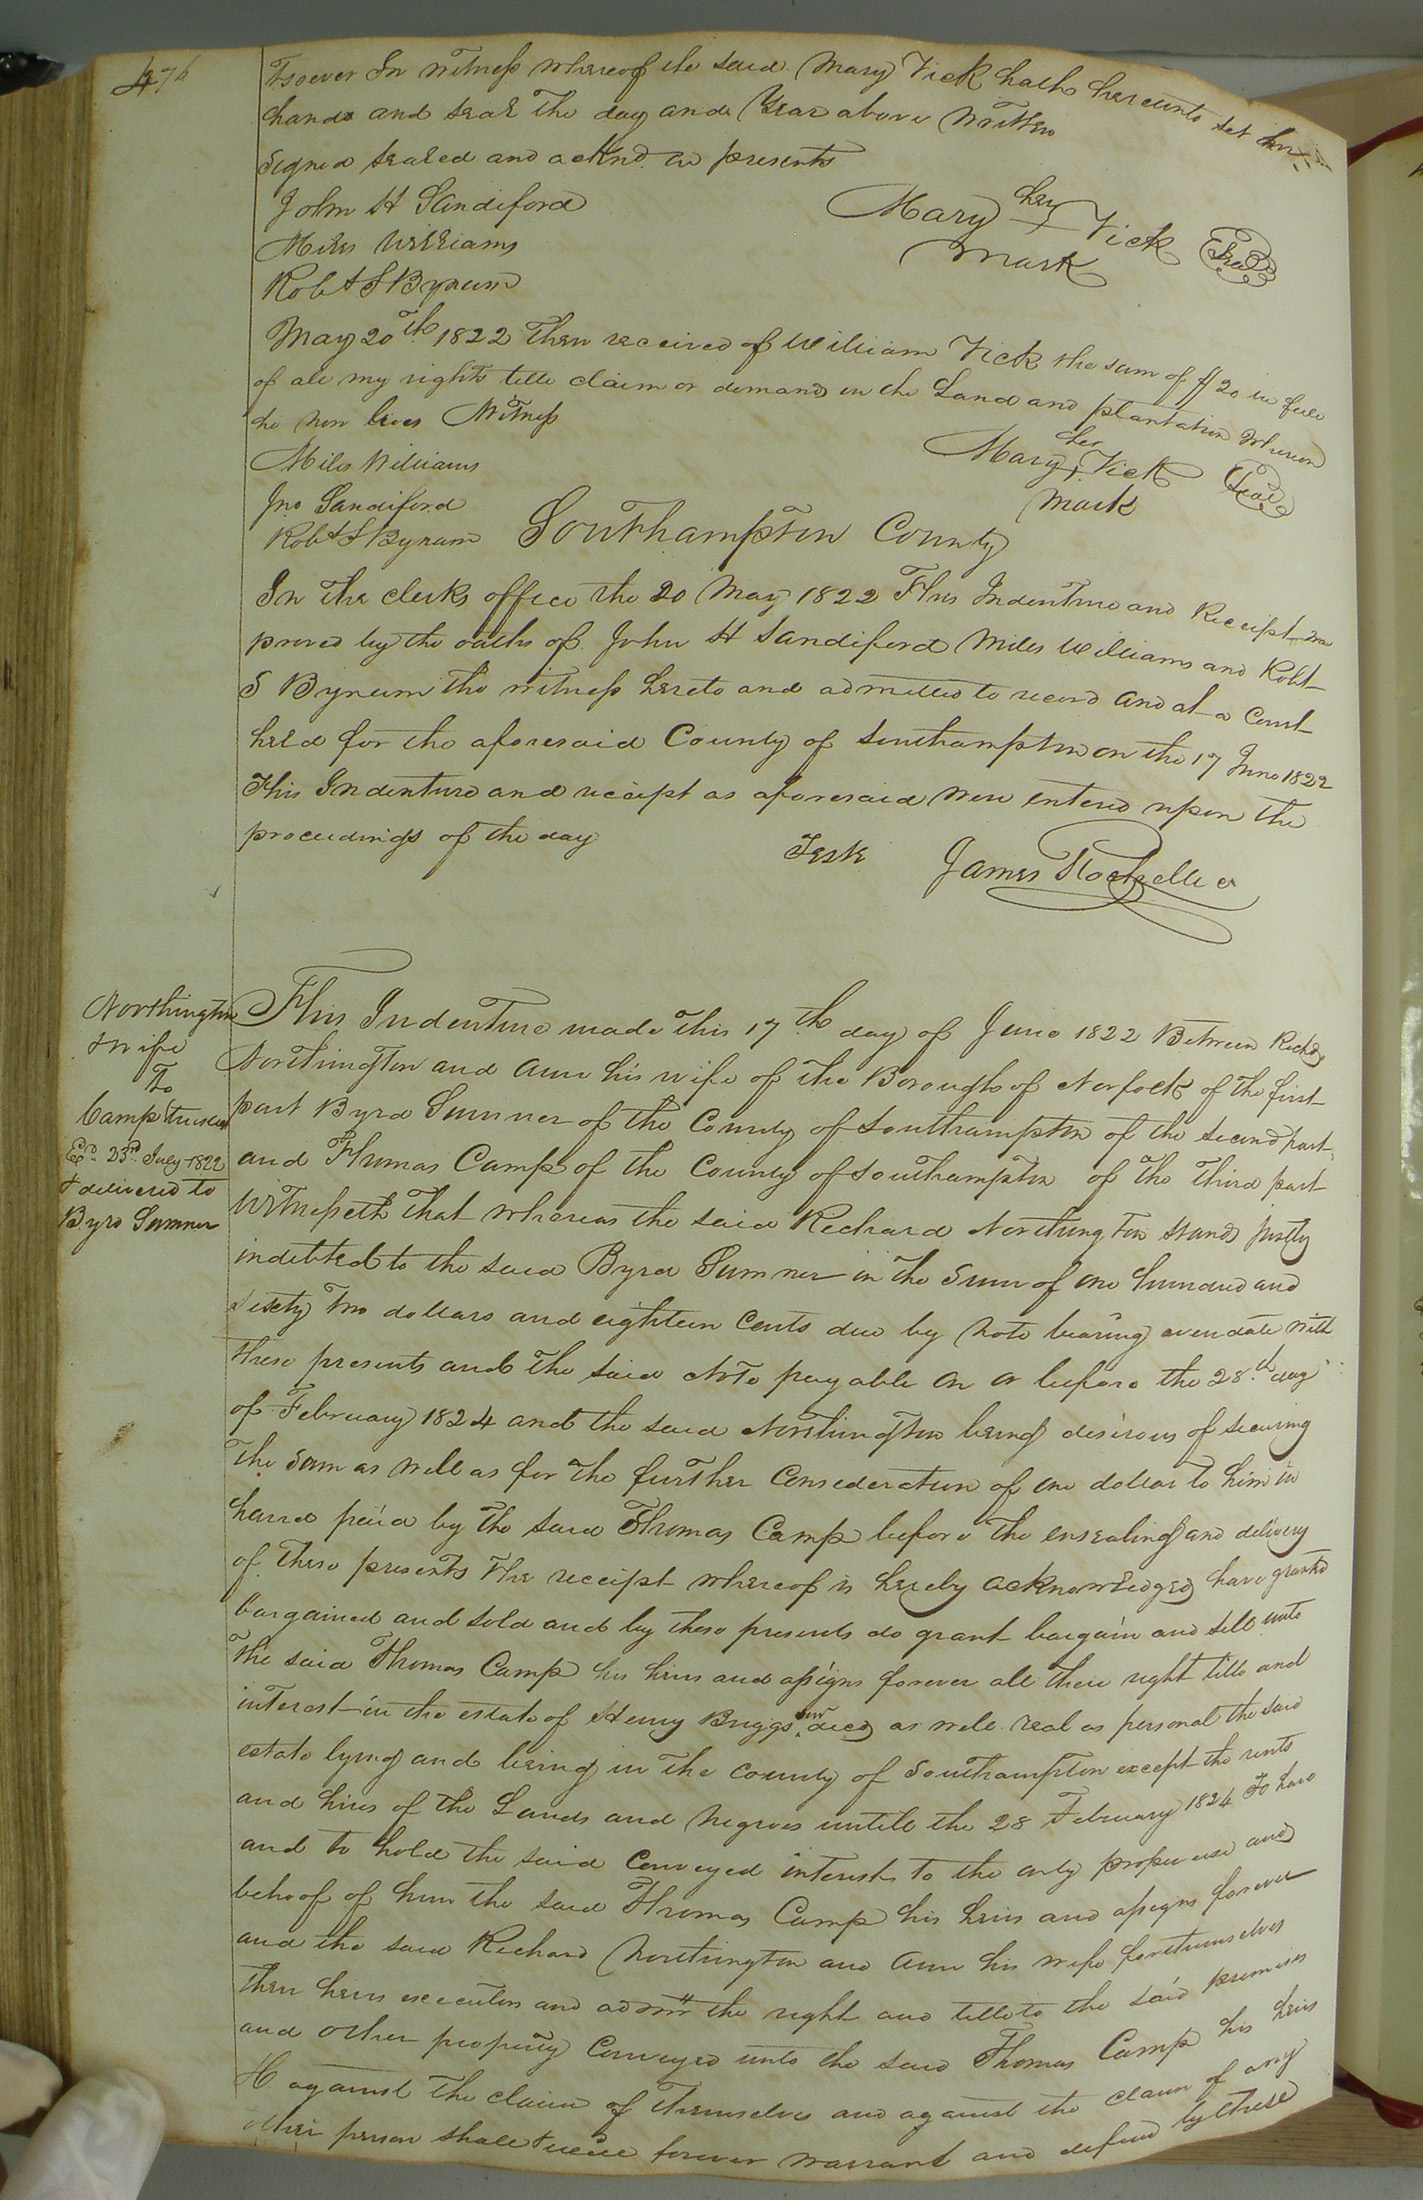 476
tsoever In witness whereof the said Mary Vick hath hereunto set her
hand and seal the day and Year above Written
Signed sealed and acknd in presents
John H Sandiford
Miles Williams
Robt S Bynum
Mary her Vick Seal
mark
May 20th 1822 Then received of William Vick the sum of $20 in full
of all my rights title claim or demand in the Land and plantation Whereon
he now lives Witness
Miles Williams
Jno Sandiford
Robt S Bynum
her
Mary Vick Seal
mark
Southampton County
In the clerks office the 20 May 1822 This Indenture and Receipt was
proved by the oaths of John H Sandiford Miles Williams and Robt
S Bynum the witness hereto and admitted to record and at a Court
held for the aforesaid County of Southampton on the 17 June 1822
This Indenture and receipt as aforesaid were entered upon the
proceedings of the day
Teste James Rochelle c
Northington
& wife
To
Camp trustee
Ed. 23rd July 1822
& delivered to
Byrd Sumner
This Indenture made this 17th day of June 1822 Between Richd
Northington and Ann his wife of the Borough of Norfolk of the first
part Byrd Sumner of the County of Southampton of the second part
and Thomas Camp of the County of Southampton of the Third part
Witnesseth That whereas the said Richard Northington stands justly
indebted to the said Byrd Sumner in the Sum of one hundred and
sixty two dollars and eighteen Cents due by note bearing even date with
these presents and the said Note payable on or before the 28th day
of February 1824 and the said Northington being desirous of securing
The Sum as well as for the further Consideration of one dollar to him in
hand paid by the said Thomas Camp before the ensealing and delivery
of these presents the receipt whereof is hereby acknowledged have granted
bargained and sold and by these presents do grant bargain and sell unto
The said Thomas Camp his heirs and assigns forever all their right title and
interest in the estate of Henry Briggs senr decd as well real as personal the said
estate lying and being in the County of Southampton except the rents
and hires of the Lands and Negroes untill the 28 February 1824 To have
and to hold the said Conveyed interest to the only proper use and
behoof of him the said Thomas Camp his heirs and assigns forever
and the said Richard Northington and Ann his wife for themselves
their heirs executors and admrs the right and title to the said premises
and other property Conveyed unto the said Thomas Camp his heirs
&c against the claim of themselves and against the claim of any
other person shall & will forever warrant and defend by these